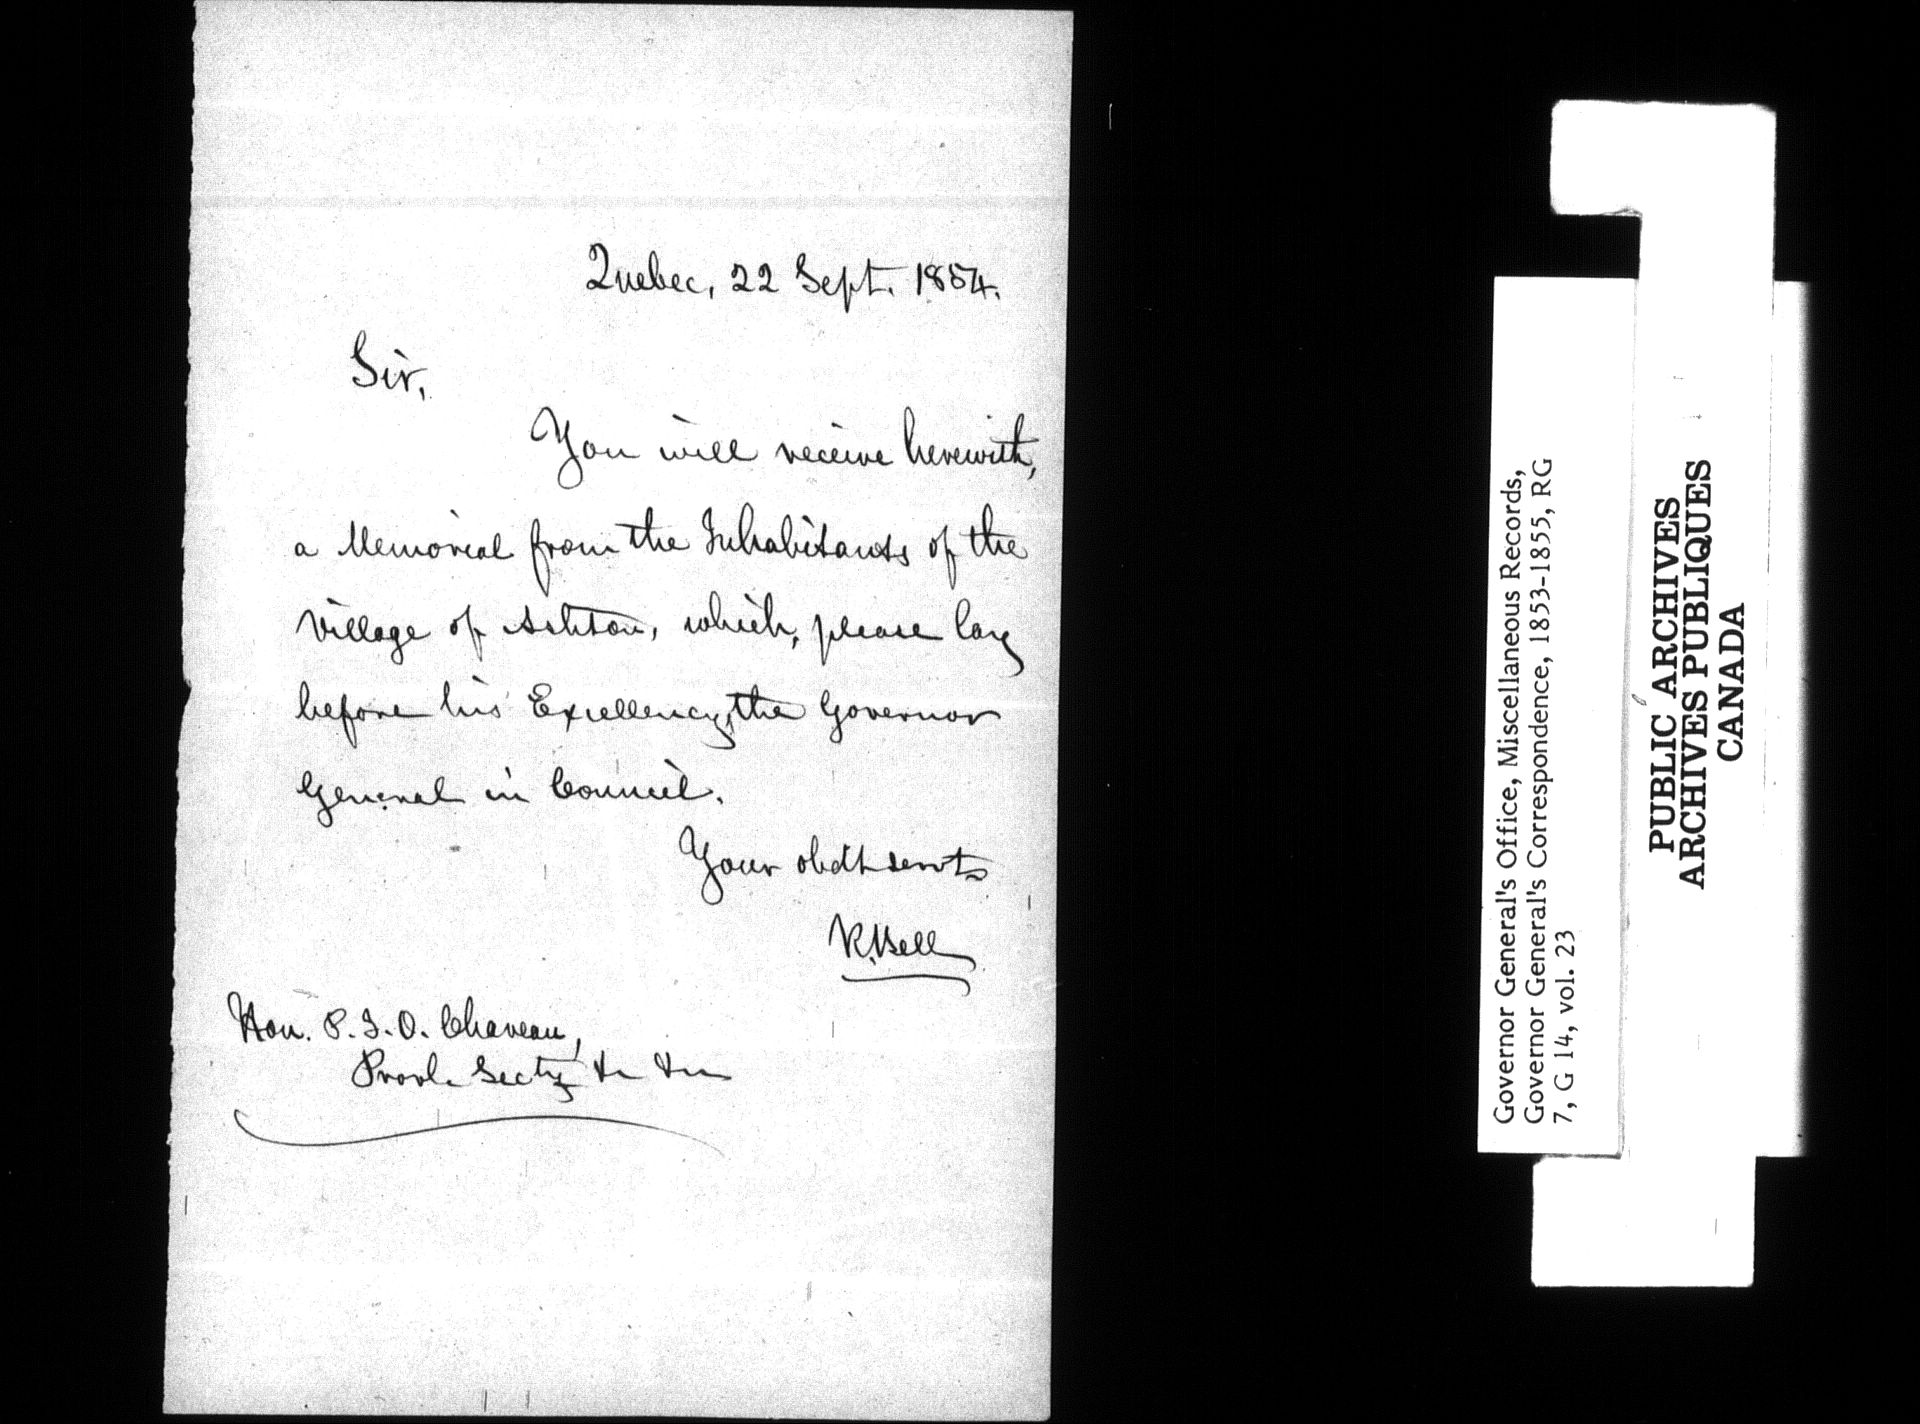 Quebec, 22 Sept. 1854.
Sir,
You will receive herewith,
a Memorial from the Inhabitants of the
Village of Ashton, which, please lay
before his Excellency, the Governor
General in Council.
Your obdt servt
R. Bell
Hon. P. J. O. Chaveau,
Provl. Secty &c &c
Governor General's Office, Miscellaneous Records,
Governor General's Correspondence, 1853-1855, RG
7, G 14, vol. 23
PUBLIC ARCHIVES
ARCHIVES PUBLIQUES
CANADA